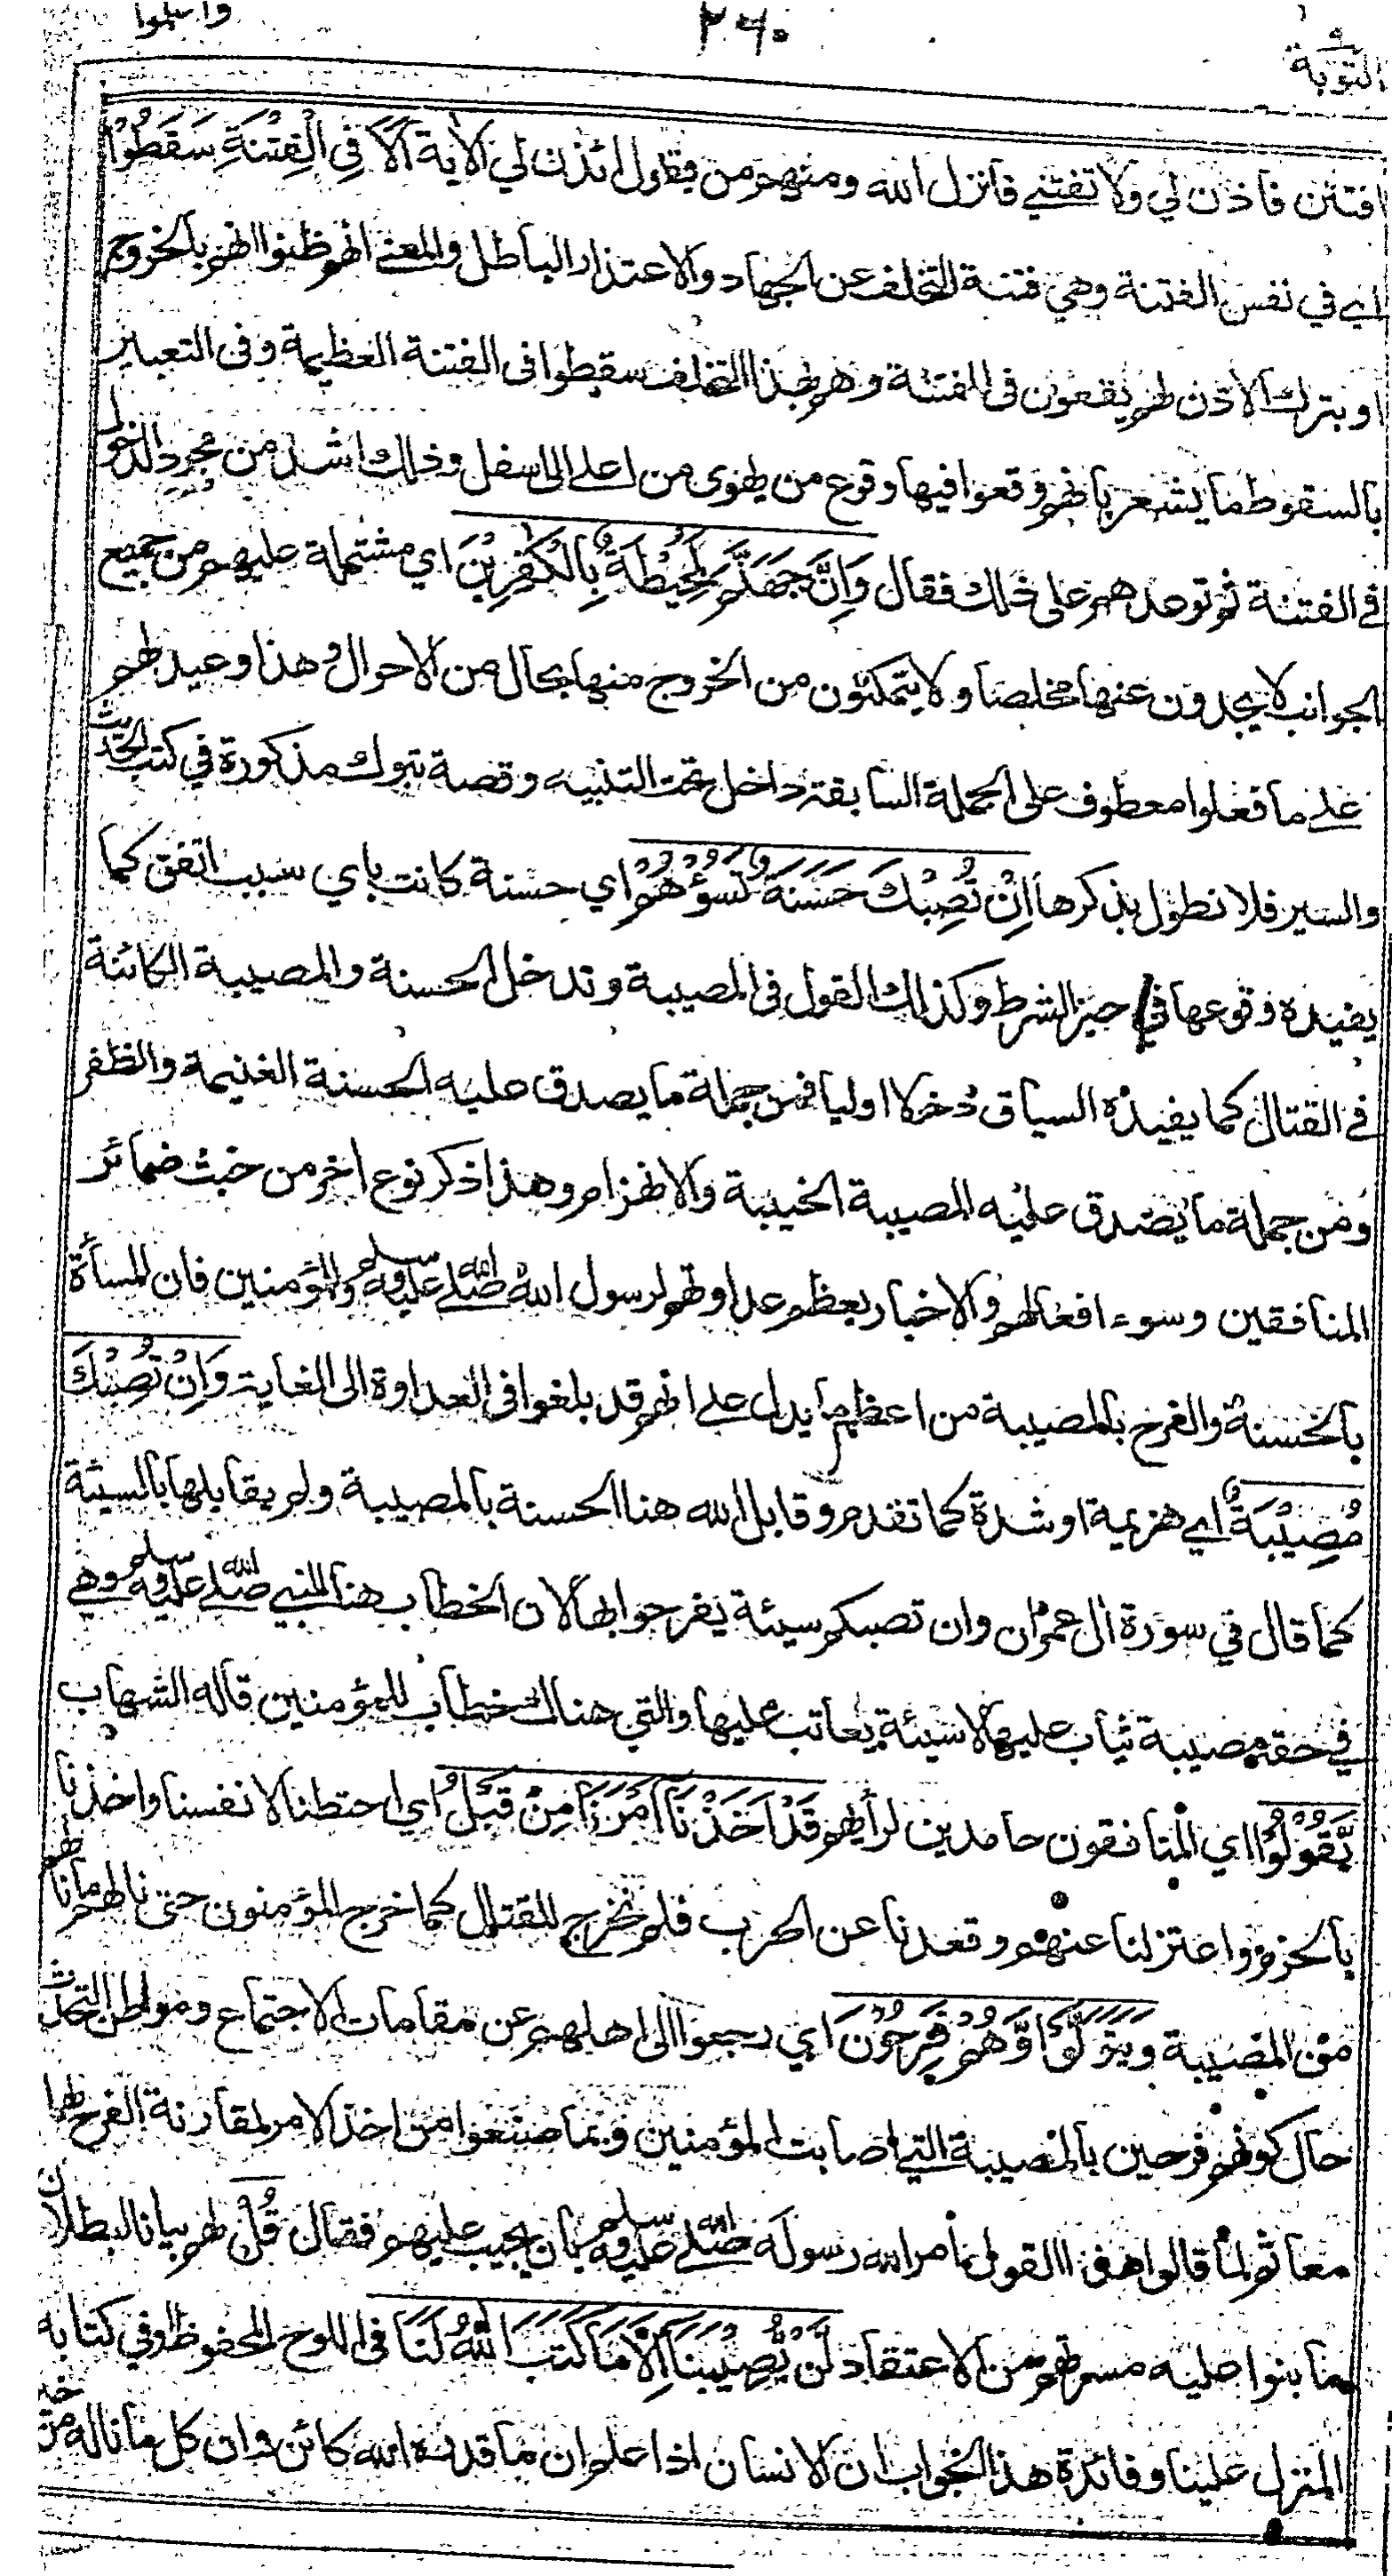 التوبة ٩
٢٦٠
واعلموا
افتتن فاذن لي ولا تفتني فانزل الله ومنهم من يقول ائذن لي الآية اَلَا فِي الْفِتْنَةِ سَقَطُوْا
اي في نفس الفتنة وهي فتنة التخلف عن الجهاد والاعتذار الباطل والمعنى انهم ظنوا انهم بالخروج
او بترك الاذن لهم يقعون في الفتنة وهم بهذا التخلف سقطوا في الفتنة العظيمة وفي التعبير
بالسقوط ما يشعر بانهم وقعوا فيها وقوع من يهوى من اعلى الى اسفل وذلك اشد من مجرد الدخول
في الفتنة ثم توعدهم على ذلك فقال وَاِنَّ جَهَنَّمَ لَمُحِيْطَةٌ بِالْكٰفِرِيْنَ اي مشتملة عليهم من جميع
الجوانب لا يجدون عنها مخلصا ولا يتمكنون من الخروج منها بحال من الاحوال وهذا وعيد لهم
على ما فعلوا معطوف على الجملة السابقة داخل تحت التنبيه وقصة تبوك مذكورة في كتب الحديث
والسير فلا نطول بذكرها اِنْ تُصِبْكَ حَسَنَةٌ تَسُؤْهُمْ اي حسنة كانت باي سبب اتفق كما
يفيده وقوعها في حيز الشرط وكذلك القول في المصيبة وتدخل الحسنة والمصيبة الكائنة
في القتال كما يفيده السياق دخولا اوليا فمن جملة ما يصدق عليه الحسنة الغنيمة والظفر
ومن جملة ما يصدق عليه المصيبة الخيبة والانهزام وهذا ذكر نوع اخر من خبث ضمائر
المنافقين وسوء افعالهم والاخبار بعظم عداوتهم لرسول الله صلى الله عليه وسلم والمؤمنين فان المساءة
بالحسنة والفرح بالمصيبة من اعظم ما يدل على انهم قد بلغوا في العداوة الى الغاية وَاِنْ تُصِبْكَ
مُصِيْبَةٌ اي هزيمة او شدة كما تقدم وقابل الله هنا الحسنة بالمصيبة ولم يقابلها بالسيئة
كما قال في سورة ال عمران وان تصبكم سيئة يفرحوا بها لان الخطاب هنا للنبي صلى الله عليه وسلم وهي
في حقه مصيبة يثاب عليها لا سيئة يعاتب عليها والتي هناك خطاب للمؤمنين قاله الشهاب
يَّقُوْلُوْا اي المنافقون حامدين لرأيهم قَدْ اَخَذْنَا اَمْرَنَا مِنْ قَبْلُ اي احتطنا لانفسنا واخذنا
بالحزم واعتزلنا عنهم وقعدنا عن الحرب فلم نخرج للقتال كما خرج المؤمنون حتى نالهم ما نالهم
من المصيبة وَيَتَوَلَّوْا وَّهُمْ فَرِحُوْنَ اي رجعوا الى اهلهم عن مقامات الاجتماع ومواطن التحدث
حال كونهم فرحين بالمصيبة التي اصابت المؤمنين وبما صنعوا من اخذ الامر لمقارنة الفرح لهما
معا ثم لما قالوا هذا القول امر الله رسوله صلى الله عليه وسلم بان يجيب عليهم فقال قُلْ لهم بيانا لبطلان
ما بنوا عليه مسرتهم من الاعتقاد لَنْ يُّصِيْبَنَا اِلَّا مَا كَتَبَ اللّٰهُ لَنَا في اللوح المحفوظ او في كتابه
المنزل علينا وفائدة هذا الجواب ان الانسان اذا علم ان ما قدره الله كائن وان كل ما ناله من خير